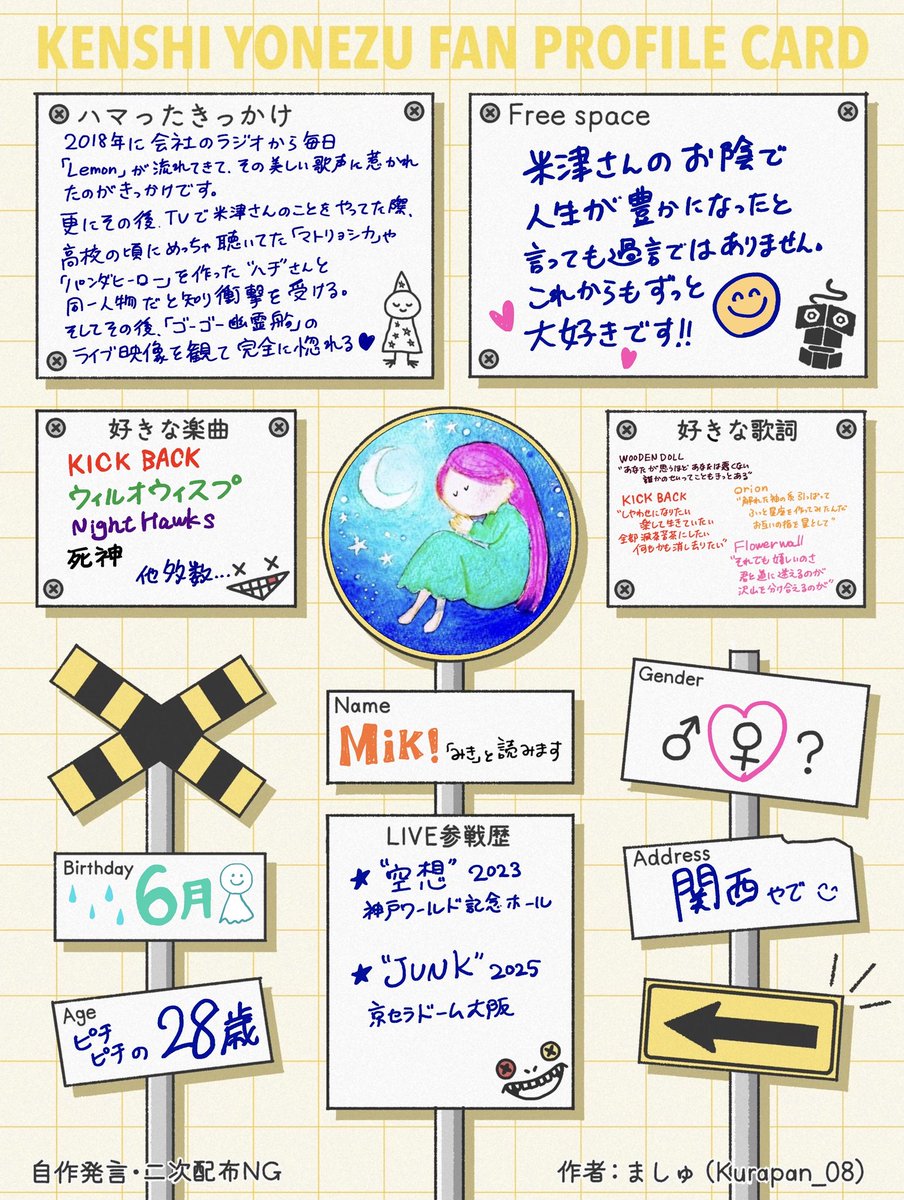 KENSHI YONEZU FAN PROFILE CARD
ハマったきっかけ
2018年に会社のラジオから毎日
「Lemon」が流れてきて、その美しい歌声に惹かれ
たのがきっかけです。
更にその後、TVで米津さんのことをやってた際、
高校の頃にめっちゃ聴いてた「マトリョシカ」や
「パンダヒーロー」を作った"ハチ"さんと
同一人物だと知り衝撃を受ける。
そしてその後、「ゴーゴー幽霊船」の
ライブ映像を観て完全に惚れる
Free space
米津さんのお陰で
人生が豊かになったと
言っても過言ではありません。
これからもずっと
大好きです!!
好きな楽曲
KICK BACK
ウィルオウィスプ
Night Hawks
死神
他多数...
好きな歌詞
WOODEN DOLL
"あなたが思うほどあなたは悪くない
誰かのせいってこともきっとある"
KICK BACK
"しやわせになりたい
楽して生きていたい
全部滅茶苦茶にしたい
何もかも消し去りたい"
orion
"解れた袖の糸引っぱって
ふっと星座を作ってみたんだ
お互いの指を星として"
Flowerwall
"それでも嬉しいのさ
君と道に迷えるのが
沢山を分け合えるのが"
Name
Mik!「みき」と読みます
Gender
♂ ♀ ?
Birthday
6月
LIVE参戦歴
★"空想" 2023
神戸ワールド記念ホール
★"JUNK" 2025
京セラドーム大阪
Address
関西やで
Age
ピチ
ピチの 28歳
自作発言・二次配布NG
作者：ましゅ (Kurapan_08)